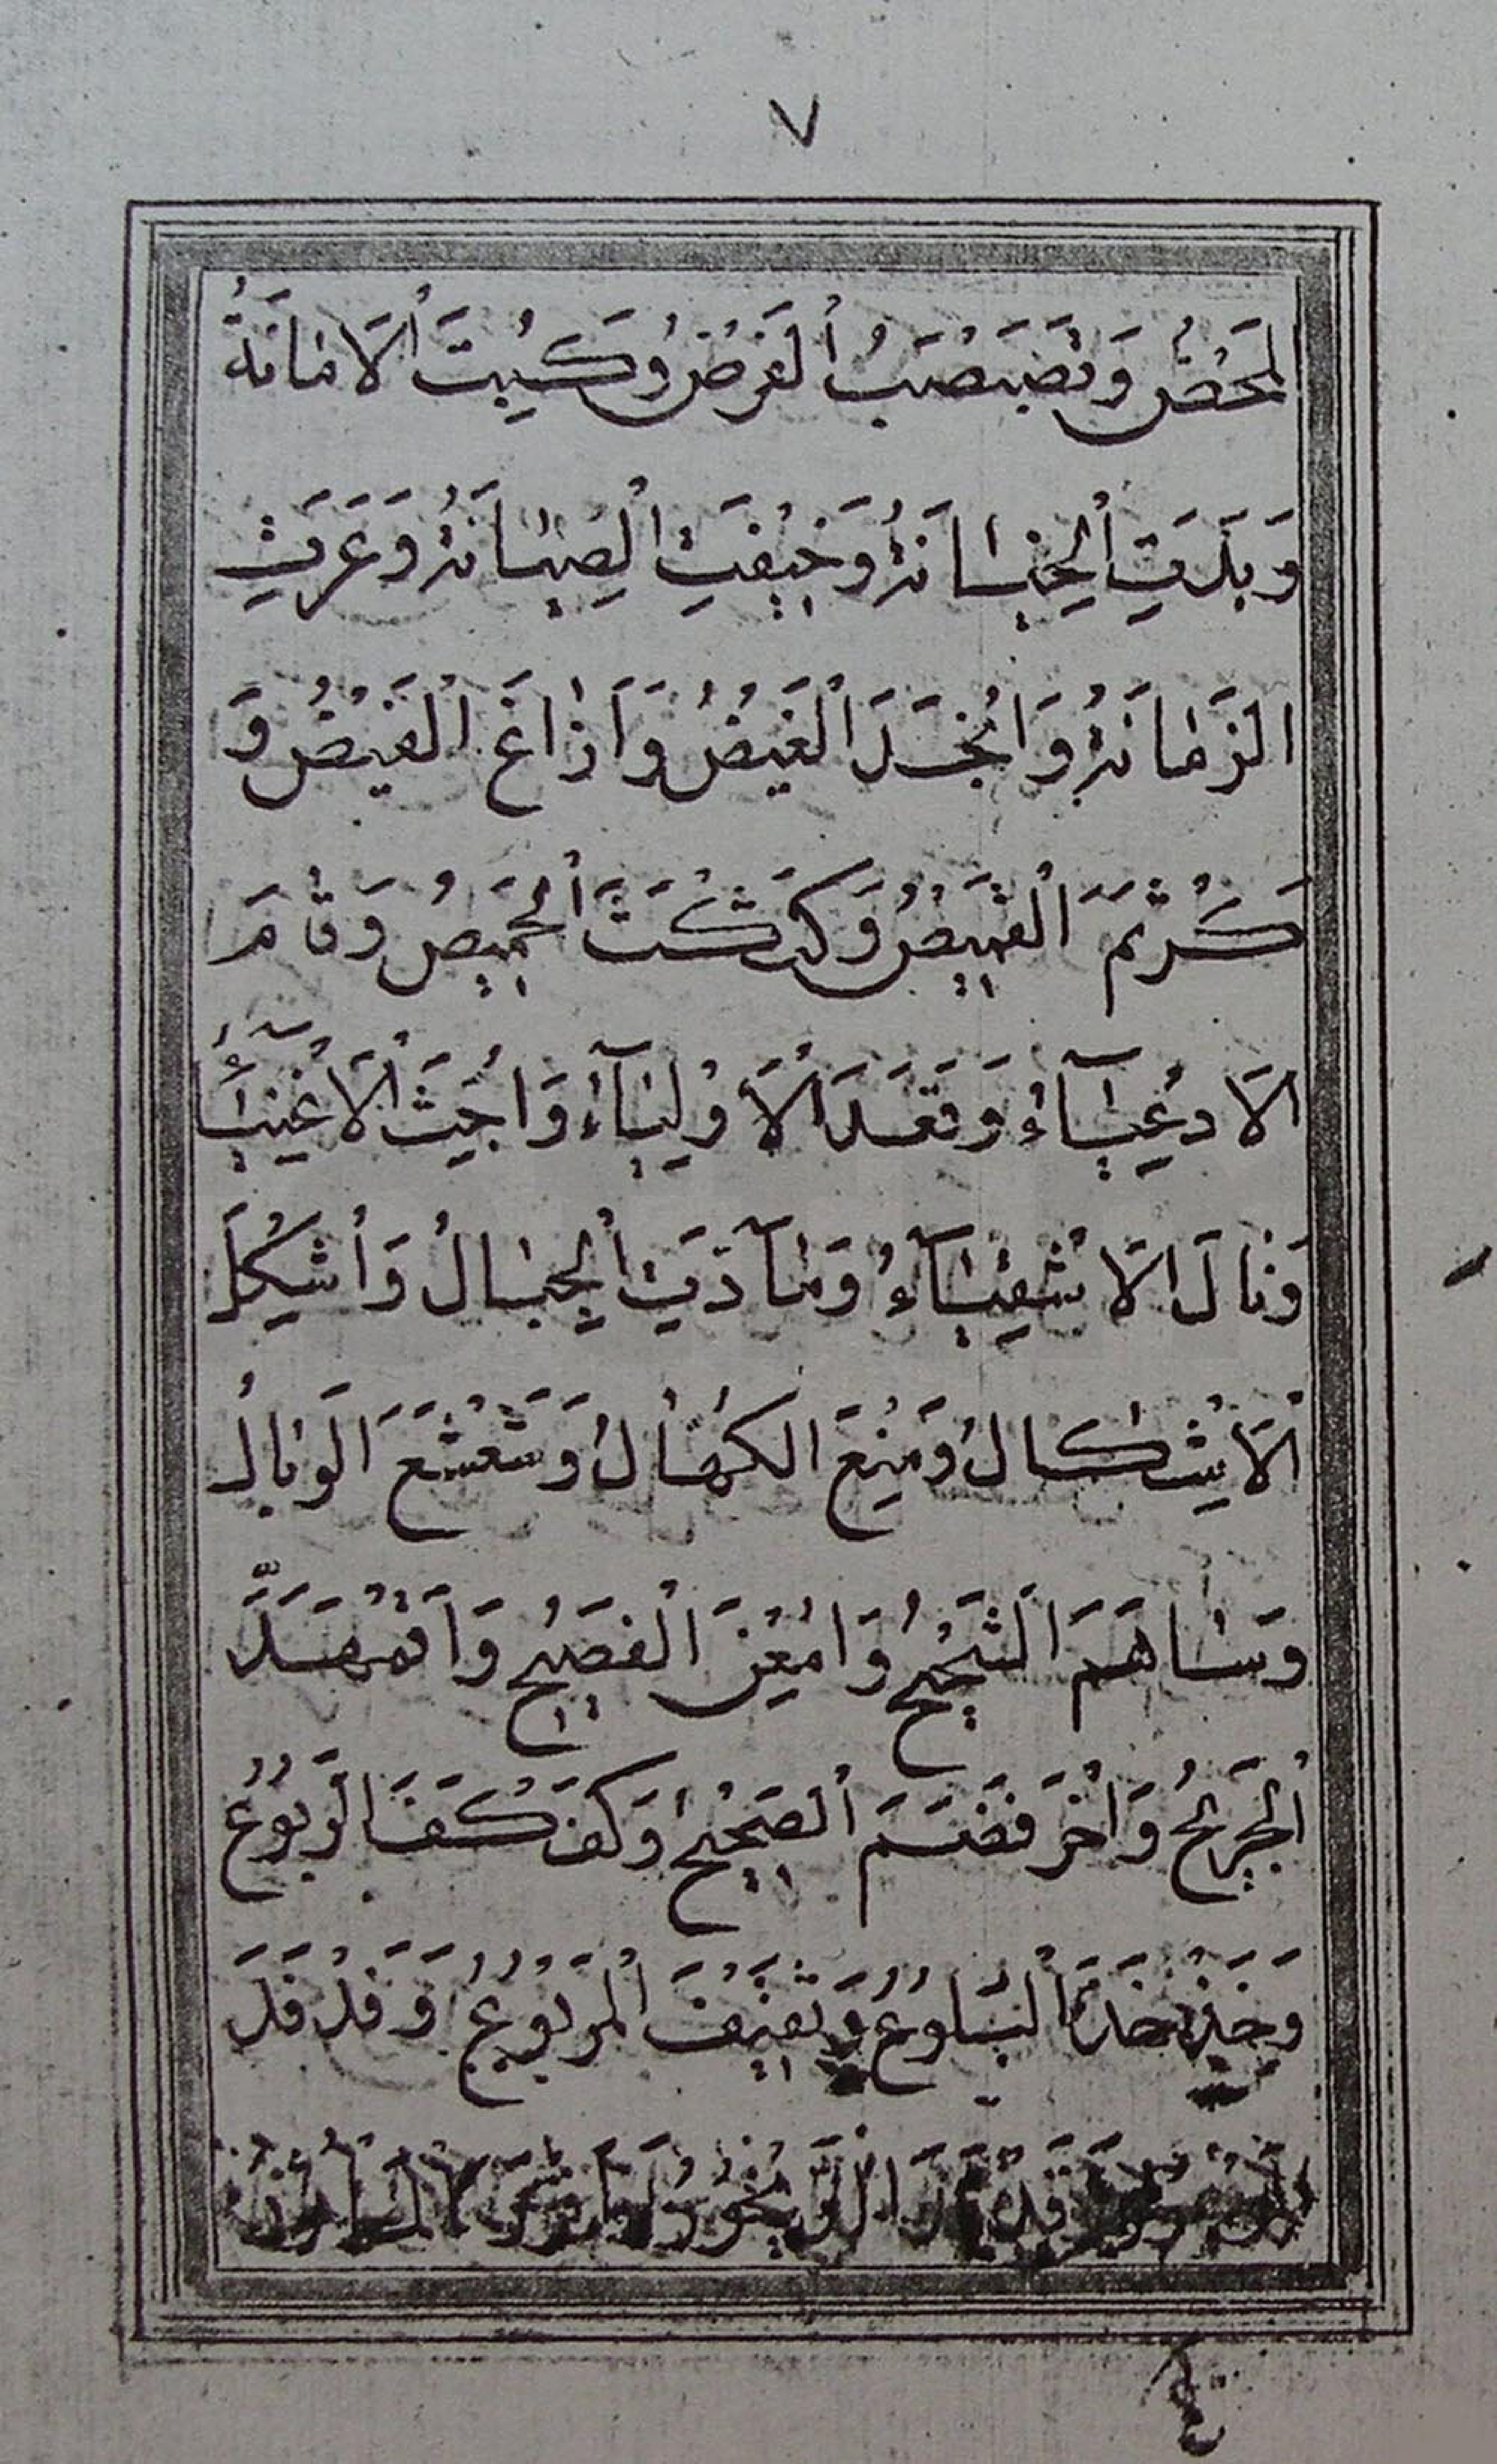 ٧
الْمَحْضُ وَتَصَبْصَبَ الْغَرَضُ وَكُبِتَ الْأَمَانَةُ
وَبَدَتِ الْخِيَانَةُ وَخِيفَتِ الصِّيَانَةُ وَعَرَتِ
الزَّمَانَةُ وَانْجَدَلَ الْغَيْضُ وَأَرَاغَ الْقَيْضُ وَ
كُرْثَمَ الْقَمِيصُ وَكَثْكَثَ الْخَمِيصُ وَقَامَ
الْأَدْعِيَاءُ وَقَعَدَ الْأَوْلِيَاءُ وَأُخِيَتِ الْأَغْنِيَاءُ
وَنَالَ الْأَشْقِيَاءُ وَمَآدَتِ الْجِبَالُ وَأَشْكَلَ
الْأَشْكَالُ وَمُنِعَ الْكَمَالُ وَشَعْشَعَ الْوَبَالُ
وَسَاهَمَ الشَّحِيحُ وَأَمْعَنَ الْفَصِيحُ وَاقْمَهَدَّ
الْجَرِيحُ وَاخْرَفْضَمَ الصَّحِيحُ وَكَفْكَفَ الرَّبُوعُ
وَخَدْخَدَ الْبَلُوعُ وَتَفَيْفَ الْمَرْبُوعُ وَفَدْفَدَ